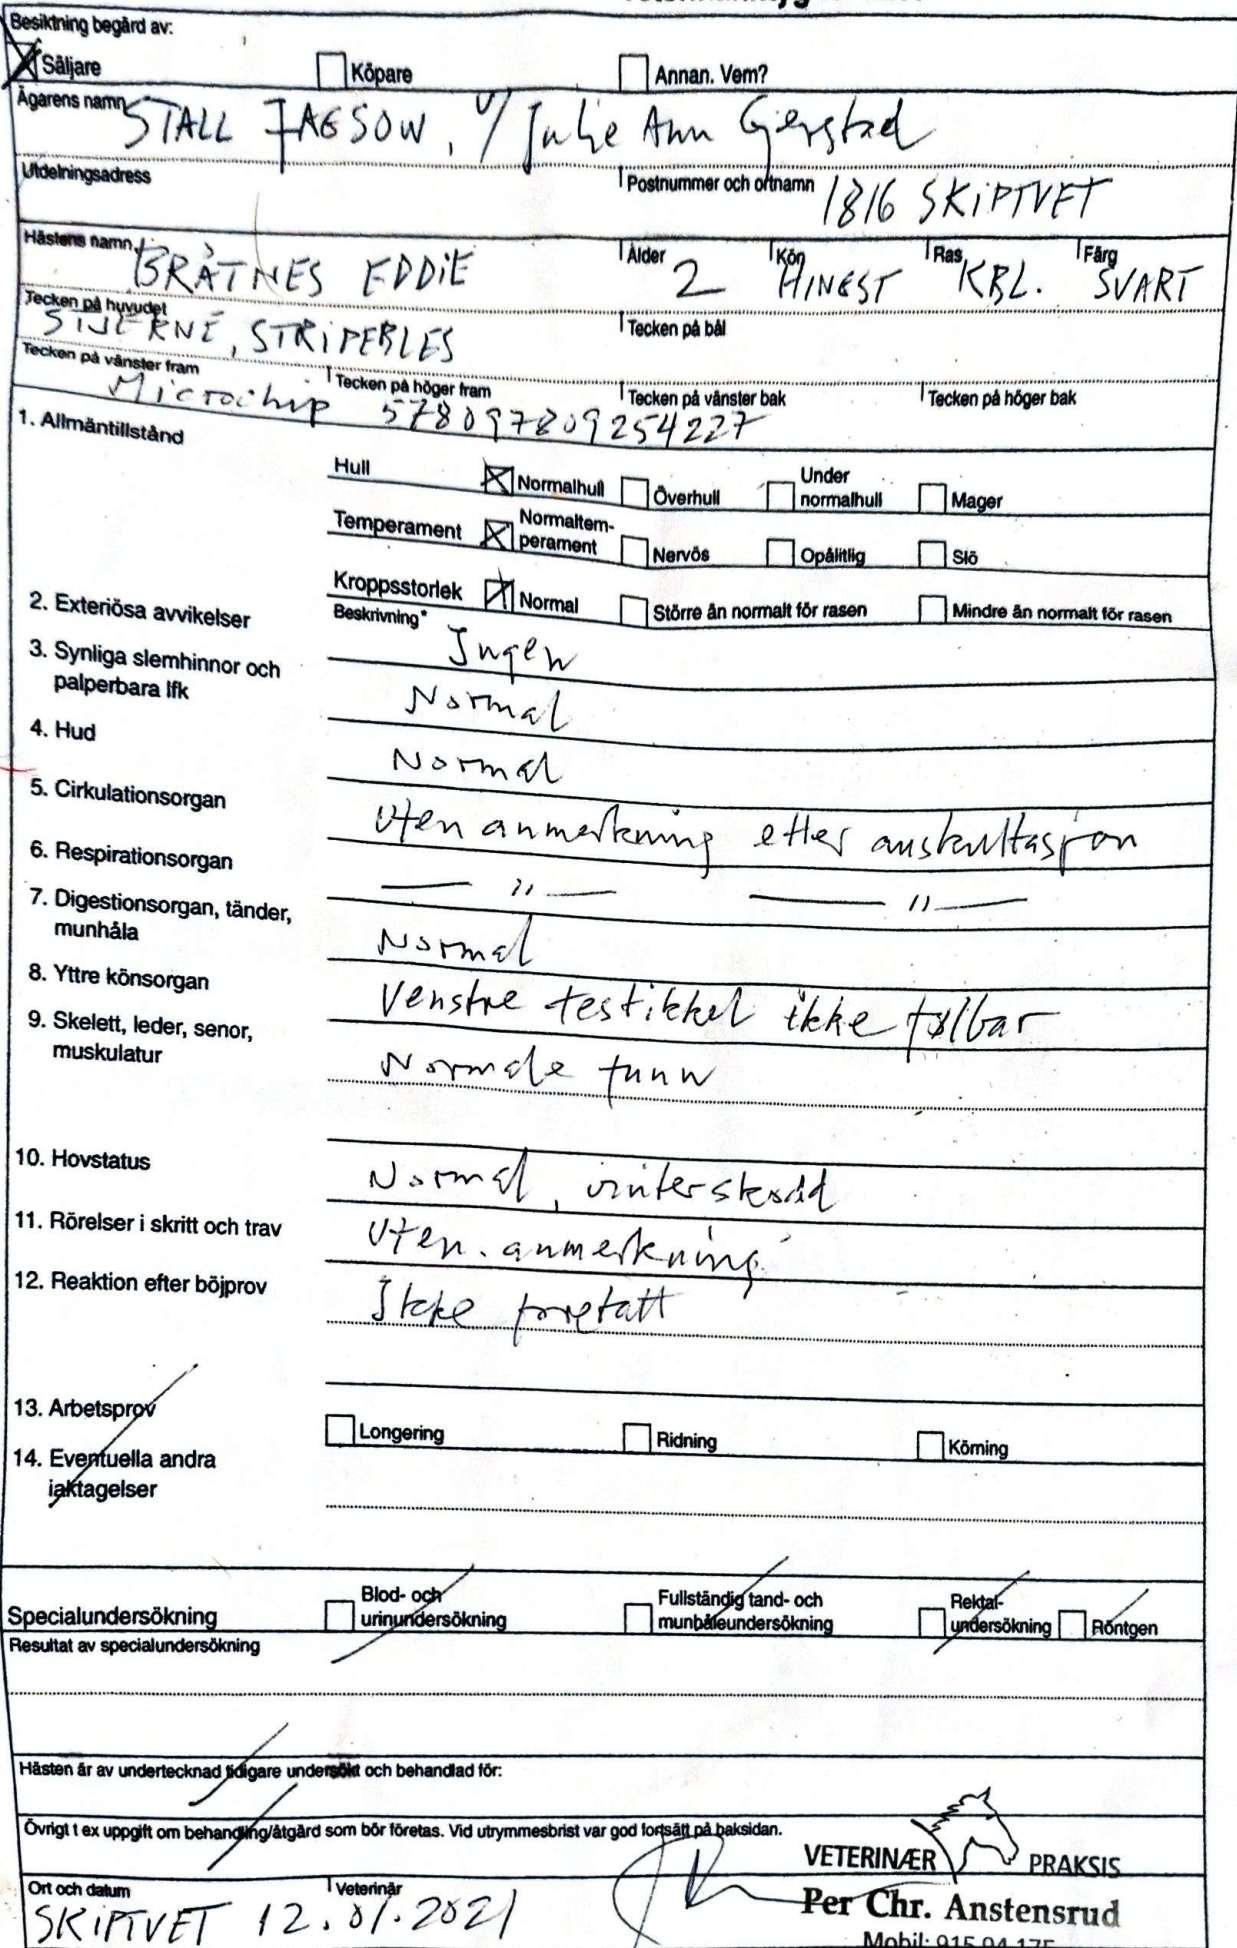 Besiktning begärd av:
Säljare Köpare Annan. Vem?
Ägarens namn STALL JAGSOW, v/ Julie Ann Gjerstad
Utdelningsadress Postnummer och ortnamn 1816 SKIPTVET
Hästens namn BRÅTNES EDDIE Ålder 2 Kön HINGST Ras KBL. Färg SVART
Tecken på huvudet STJERNE, STRIPEBLES Tecken på bål
Tecken på vänster fram Tecken på höger fram Tecken på vänster bak Tecken på höger bak
Microchip 578097809254227
1. Allmäntillstånd
Hull Normalhull Överhull Under normalhull Mager
Temperament Normaltem-perament Nervös Opålitlig Slö
Kroppsstorlek Normal Större än normalt för rasen Mindre än normalt för rasen
2. Exteriösa avvikelser Beskrivning* Ingen
3. Synliga slemhinnor och palperbara lfk Normal
4. Hud Normal
5. Cirkulationsorgan Uten anmerkning etter auskultasjon
6. Respirationsorgan — " — — " —
7. Digestionsorgan, tänder, munhåla Normal
8. Yttre könsorgan Venstre testikkel ikke følbar
9. Skelett, leder, senor, muskulatur Normale funn
10. Hovstatus Normal, vinterskodd
11. Rörelser i skritt och trav Uten anmerkning
12. Reaktion efter böjprov Ikke foretatt
13. Arbetsprov Longering Ridning Körning
14. Eventuella andra iakttagelser
Specialundersökning Blod- och urinundersökning Fullständig tand- och munhåleundersökning Rektal-undersökning Röntgen
Resultat av specialundersökning
Hästen är av undertecknad tidigare undersökt och behandlad för:
Övrigt t ex uppgift om behandling/åtgärd som bör företas. Vid utrymmesbrist var god fortsätt på baksidan.
VETERINÆR PRAKSIS
Ort och datum Veterinär
SKIPTVET 12.01.2021 Per Chr. Anstensrud
Mobil: 915 04 175